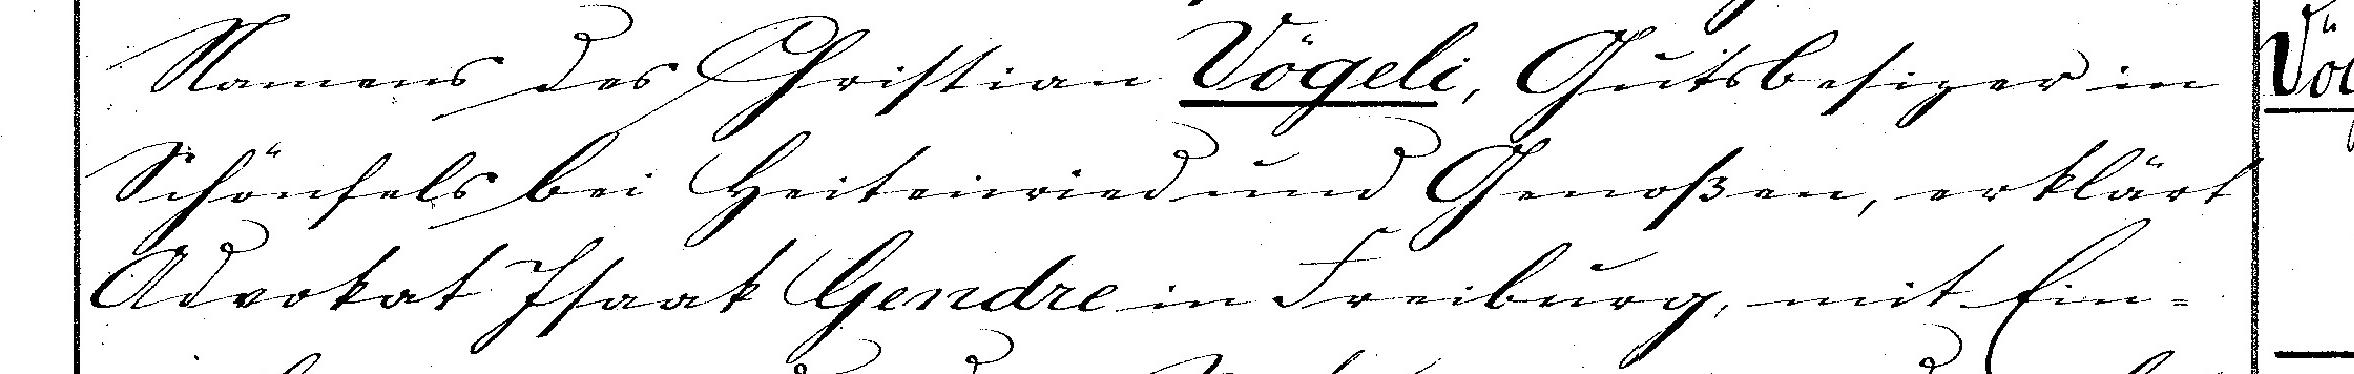 Namens des Christian Vögeli, Gutsbesizer in
Schönfels bei Heitenried und Genoßen, erklärt
Advokat Isaak Gendre in Freiburg, mit Ein-